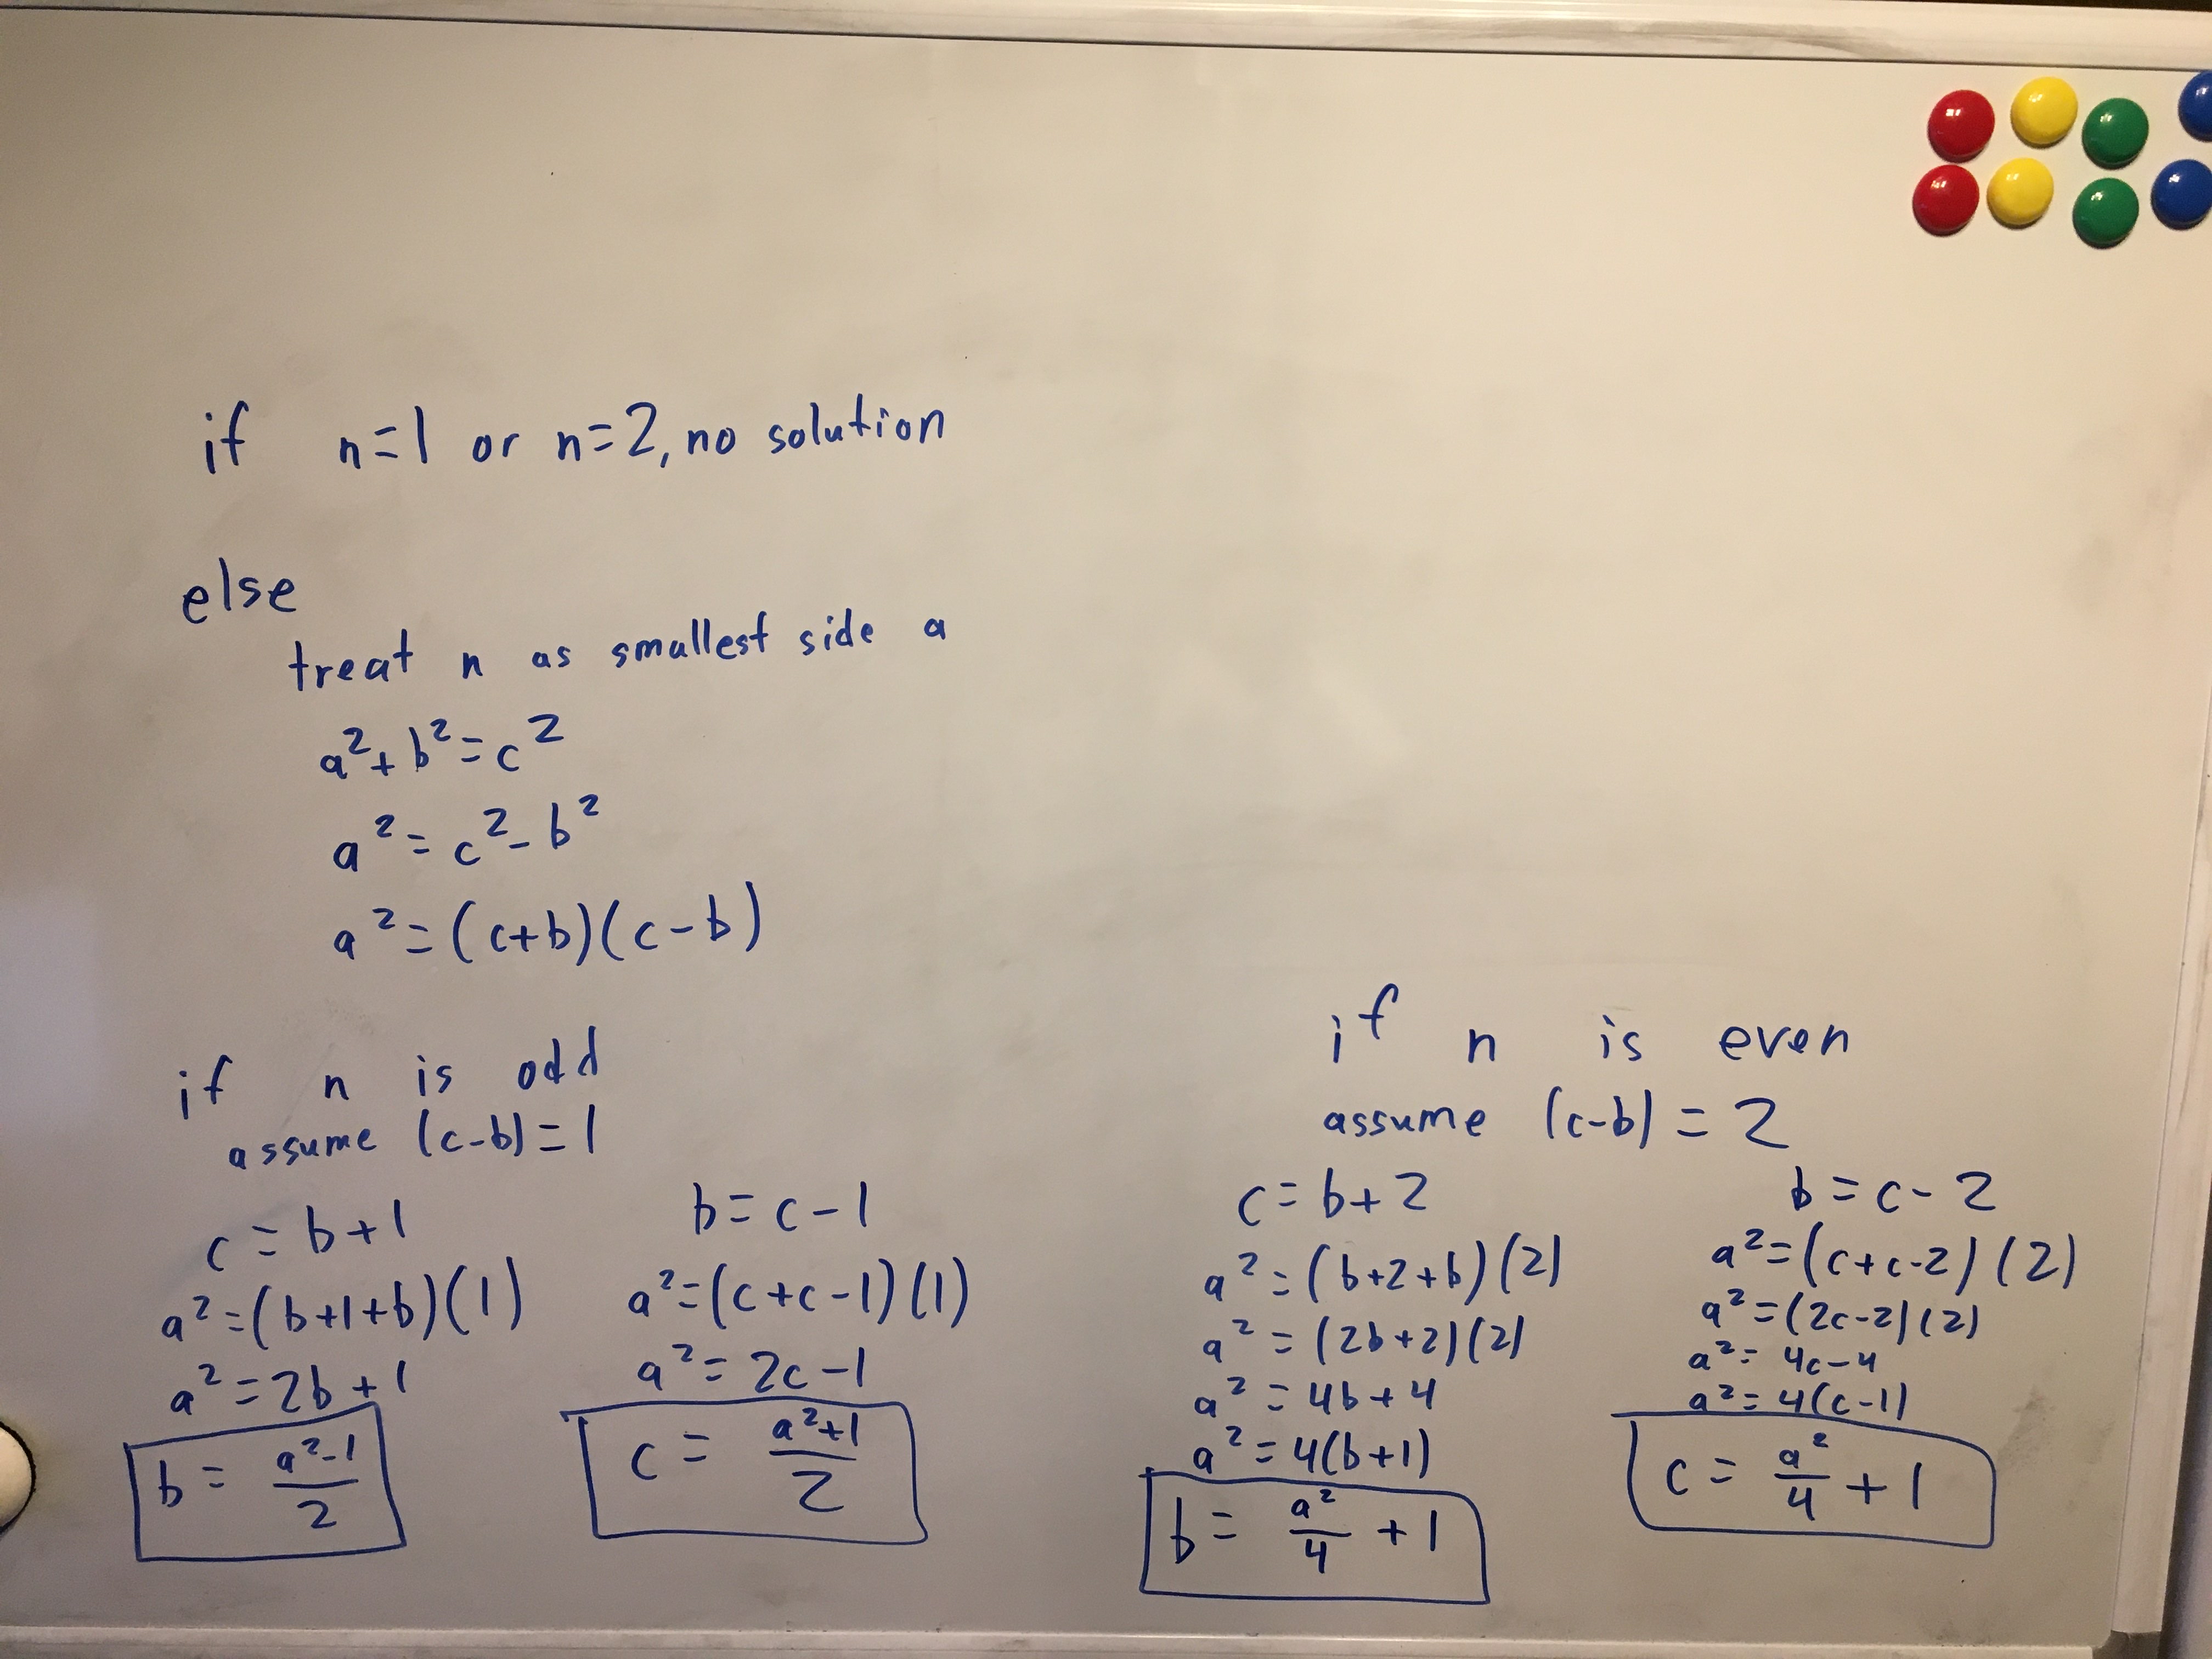 if n=1 or n=2, no solution
else
treat n as smallest side a
a²+b²=c²
a²=c²-b²
a²=(c+b)(c-b)
if n is odd
assume (c-b)=1
c=b+1
a²=(b+1+b)(1)
a²=2b+1
b=(a²-1)/2
b=c-1
a²=(c+c-1)(1)
a²=2c-1
c=(a²+1)/2
if n is even
assume (c-b)=2
c=b+2
a²=(b+2+b)(2)
a²=(2b+2)(2)
a²=4b+4
a²=4(b+1)
b=a²/4+1
b=c-2
a²=(c+c-2)(2)
a²=(2c-2)(2)
a²=4c-4
a²=4(c-1)
c=a²/4+1